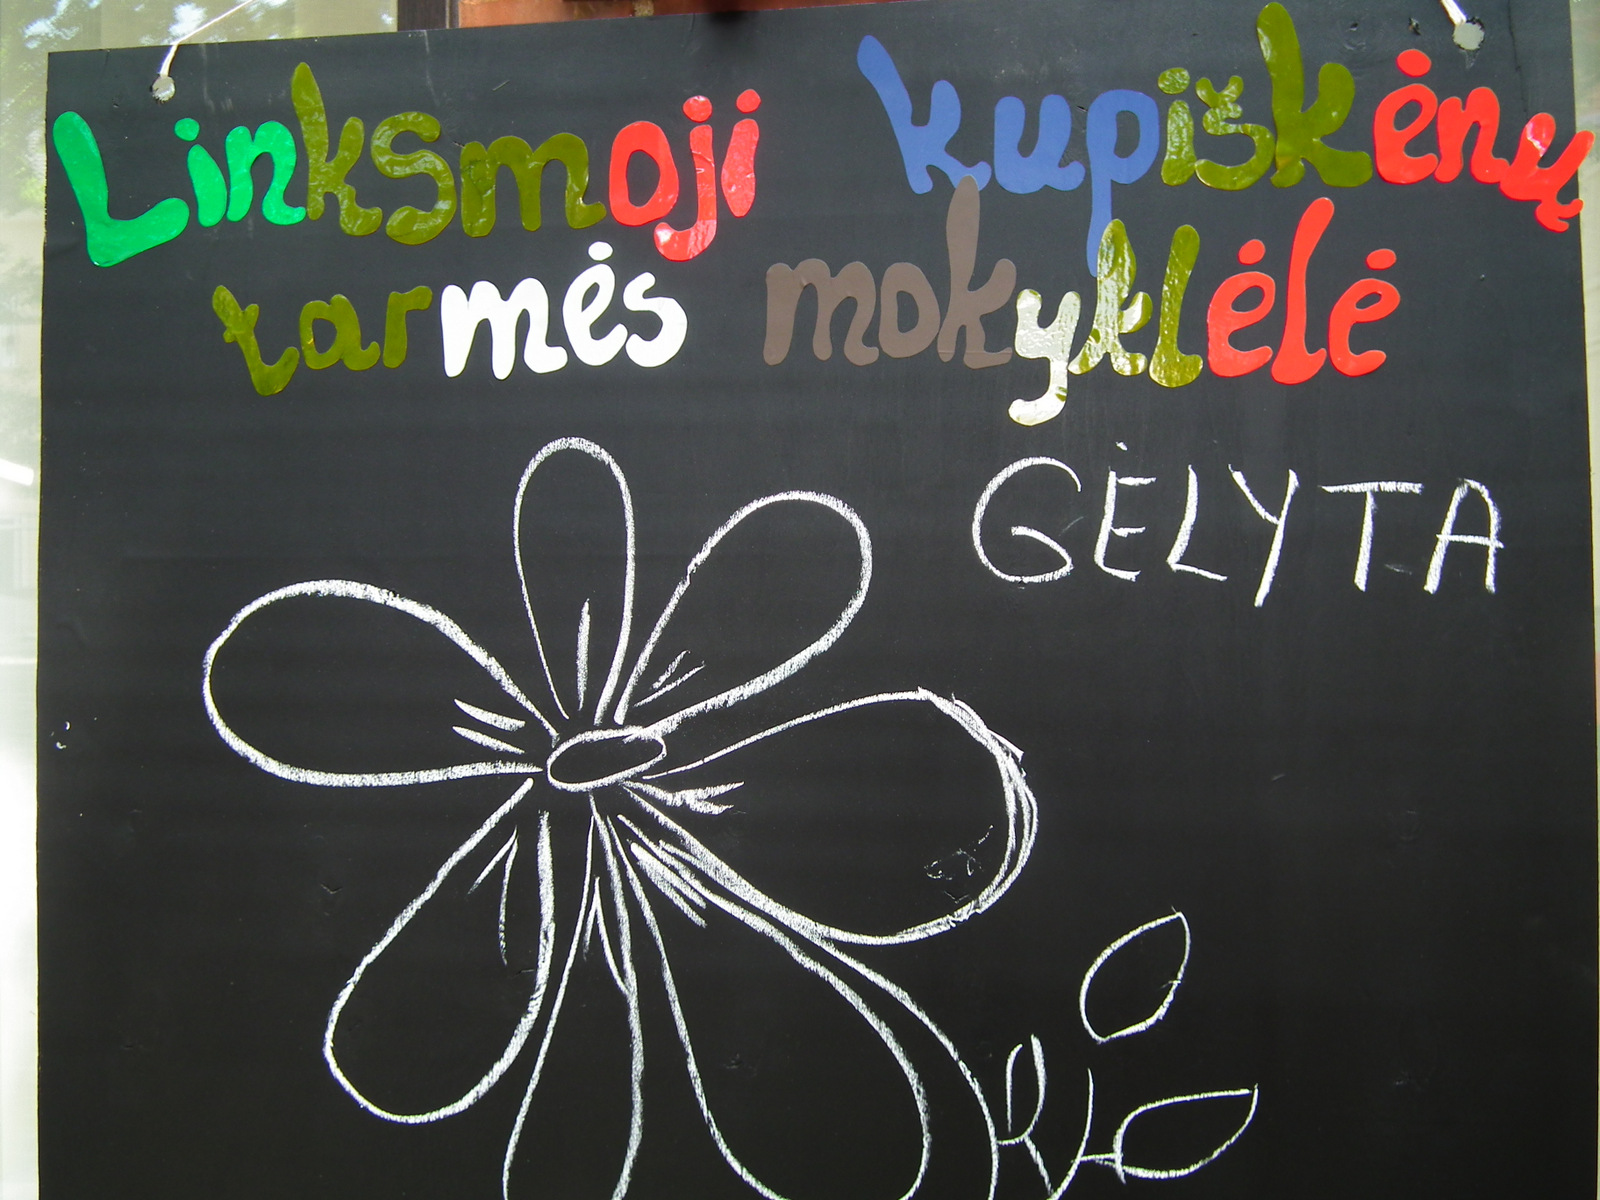 Linksmoji kupiškėnų
tarmės mokyklėlė
GĖLYTA